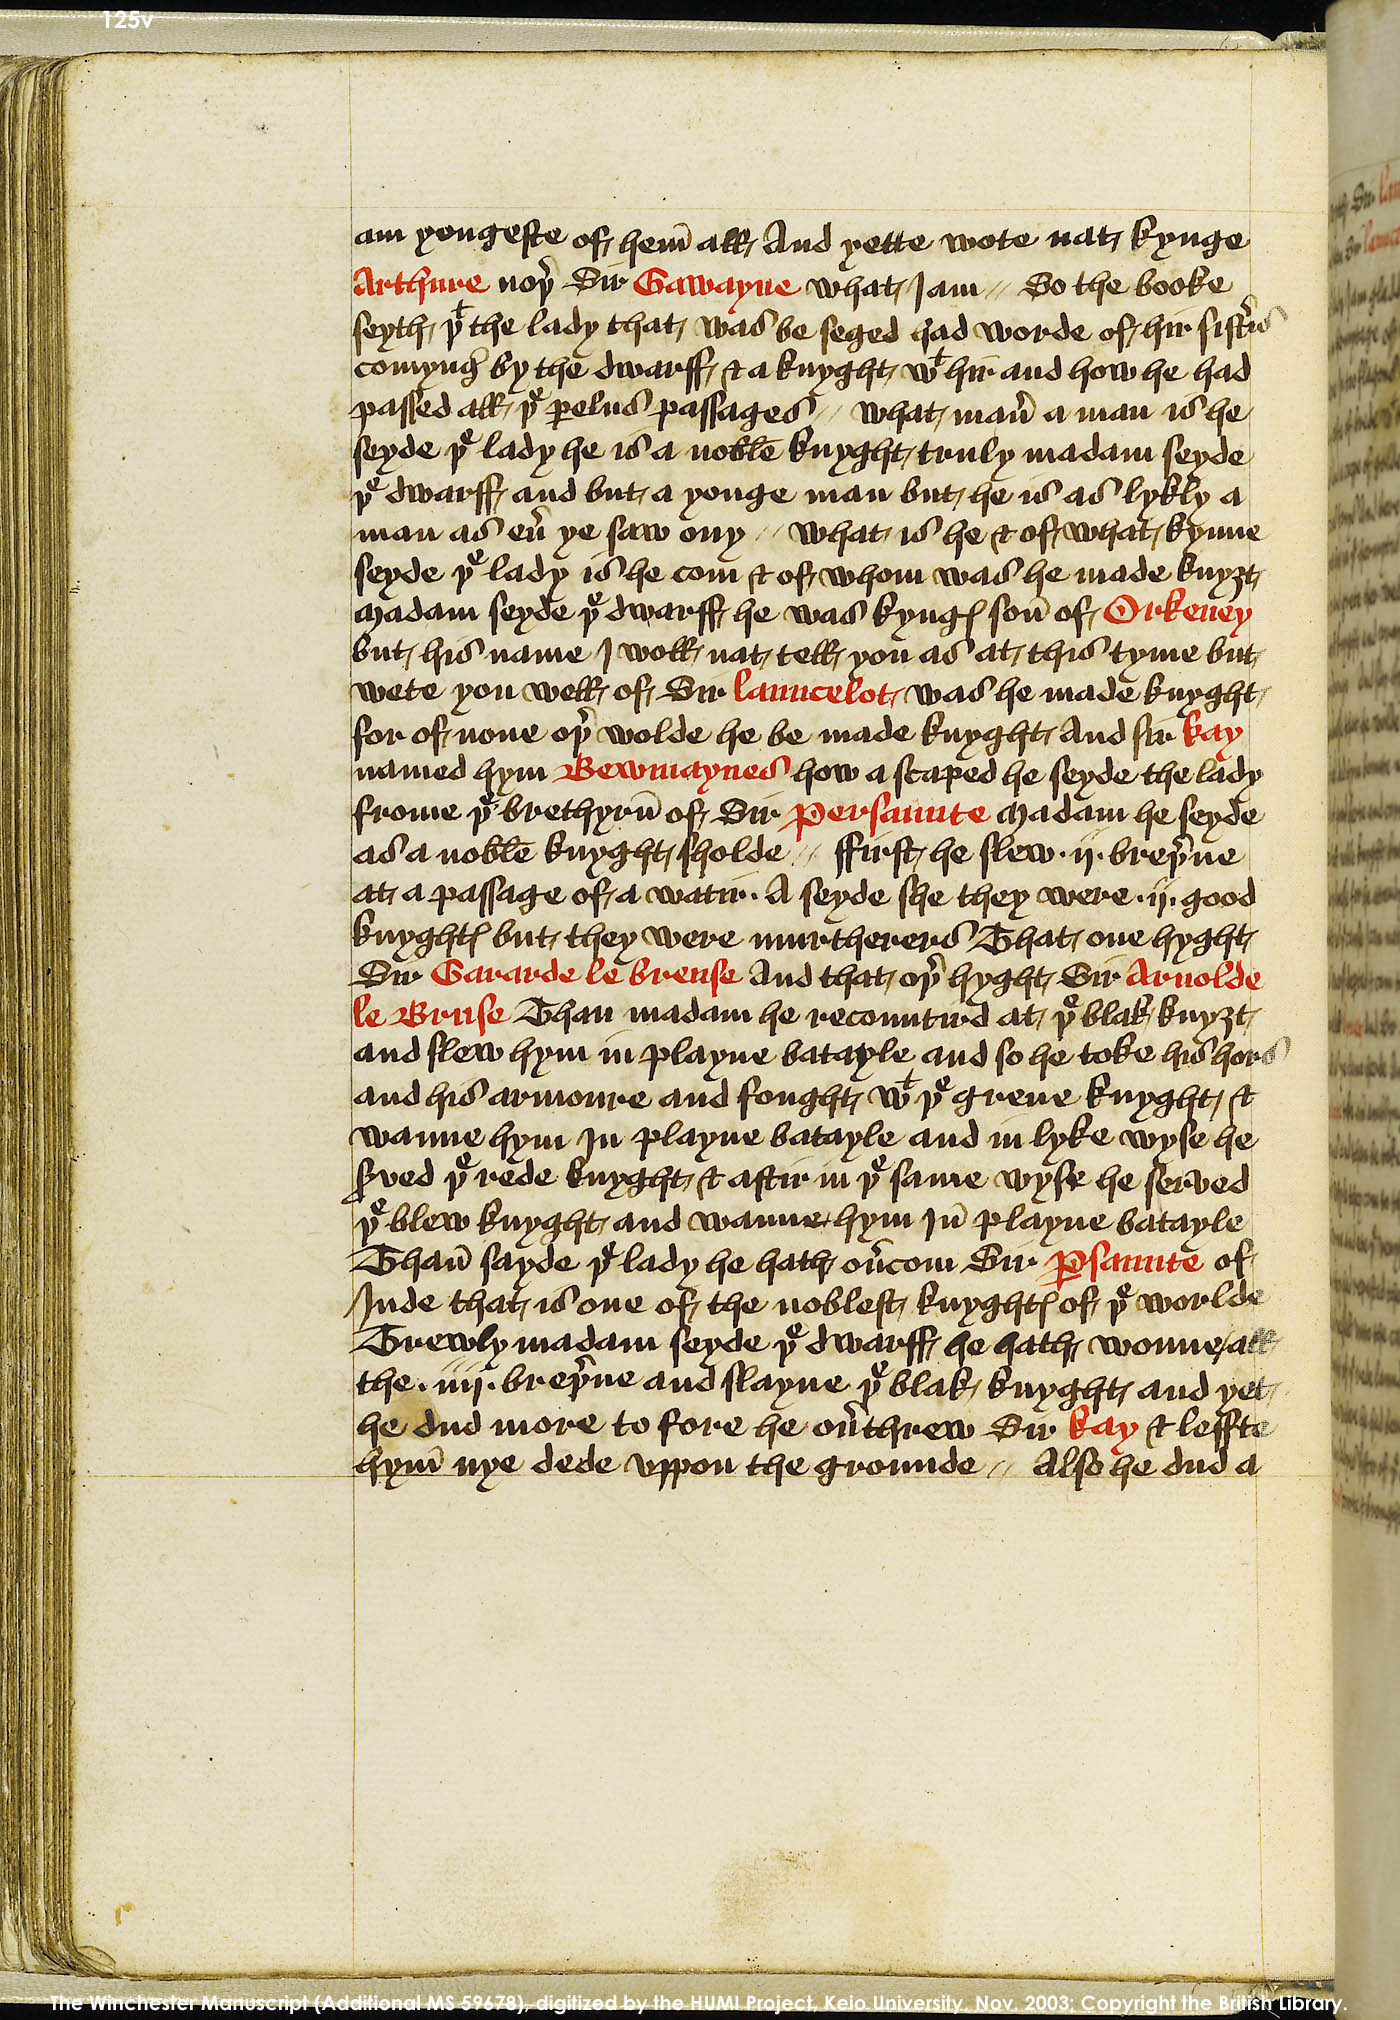 125v
am yongeste of hem̄ all And yette wote nat kynge
Arthure noþ̛ Sir Gawayne what I am // So the booke
seyth þͭ the lady that was be seged had worde of hir sistirs
comyng by the dwarff & a knyght wͭ hir and how he had
passed all þͤ ꝑelus passages // what man̛ a man is he
seyde þͤ lady he is a noble knyght truly madam seyde
þͤ dwarff and but a yonge man but he is as lykly a
man as eư ye saw ony // what is he & of what kynne
seyde þͤ lady is he com & of whom was he made knyȝt
Madam seyde þͤ dwarff he was kyngꝭ son̄ of Orkeney
but his name I woll nat tell you as at this tyme but
wete you well of Sir launcelot was he made knyght
for of none oþ̛ wolde he be made knyght And sir kay
named hym Bewmaynes how ascaped he seyde the lady
frome þͤ brethyrn̄ of Sir Persaunte Madam he seyde
as a noble knyght sholde // ffirst he slew .ij. breþ̛ne
at a passage of a watir . A seyde she they were .ij. good
knyghtꝭ but they were murtherers That one hyght
Sir Gararde le breuse And that oþ̛ hyght Sir Arnolde
le Bruse Than madam he recountird at þͤ blak knyȝt
and slew hym in playne batayle and so he toke his hors
and his armoure and fought wͭ þͤ grene knyght &
wanne hym In playne batayle and in lyke wyse he
s̛ved þͤ rede knyght & aftir in þͤ same wyse he served
þͤ blew knyght and wanne hym In̄ playne batayle
Than̄ sayde þͤ lady he hath oưcom Sir ꝑsaunte of
Inde that is one of the noblest knyghtꝭ of þͤ worlde
Trewly madam seyde þͤ dwarff he hath wonne / all
the .iiij. breþ̛ne and slayne þͤ blak knyght and yet
he dud more to fore he oưthrew Sir kay & leffte
hym̄ nye dede vppon the grounde // Also he dud a
The Winchester Manuscript (Additional MS 59678), digitized by the HUMI Project, Keio University, Nov. 2003; Copyright the British Library.